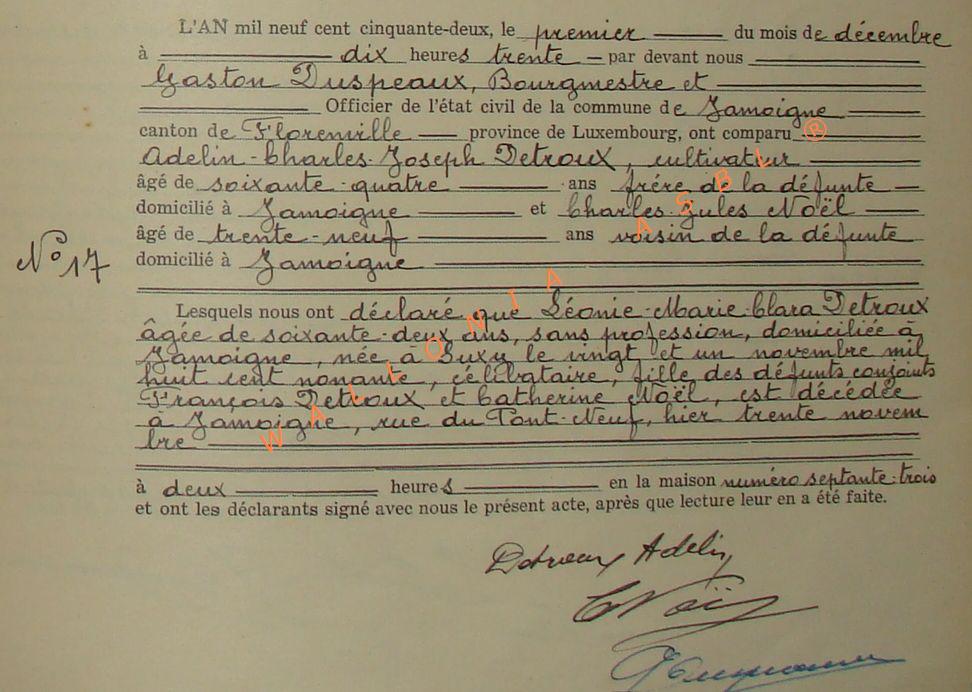 L'AN mil neuf cent cinquante-deux, le premier du mois de décembre
à dix heures trente – par devant nous
Gaston Duspeaux, Bourgmestre et
Officier de l'état civil de la commune de Jamoigne
canton de Florenville province de Luxembourg, ont comparu
Adelin-Charles-Joseph Detroux, cultivateur
âgé de soixante-quatre ans frère de la défunte
domicilié à Jamoigne et Charles-Jules Noël
âgé de trente-neuf ans voisin de la défunte
N° 17
domicilié à Jamoigne
Lesquels nous ont déclaré que Léonie-Marie-Clara Detroux
âgée de soixante-deux ans, sans profession, domiciliée à
Jamoigne, née à Suxy le vingt et un novembre mil
huit cent nonante, célibataire, fille des défunts conjoints
François Detroux et Catherine Noël, est décédée
à Jamoigne, rue du Pont-Neuf, hier trente novem
bre
à deux heures en la maison numéro septante-trois
et ont les déclarants signé avec nous le présent acte, après que lecture leur en a été faite.
Detroux Adelin
C Noël
WALLONIA ASBL ®